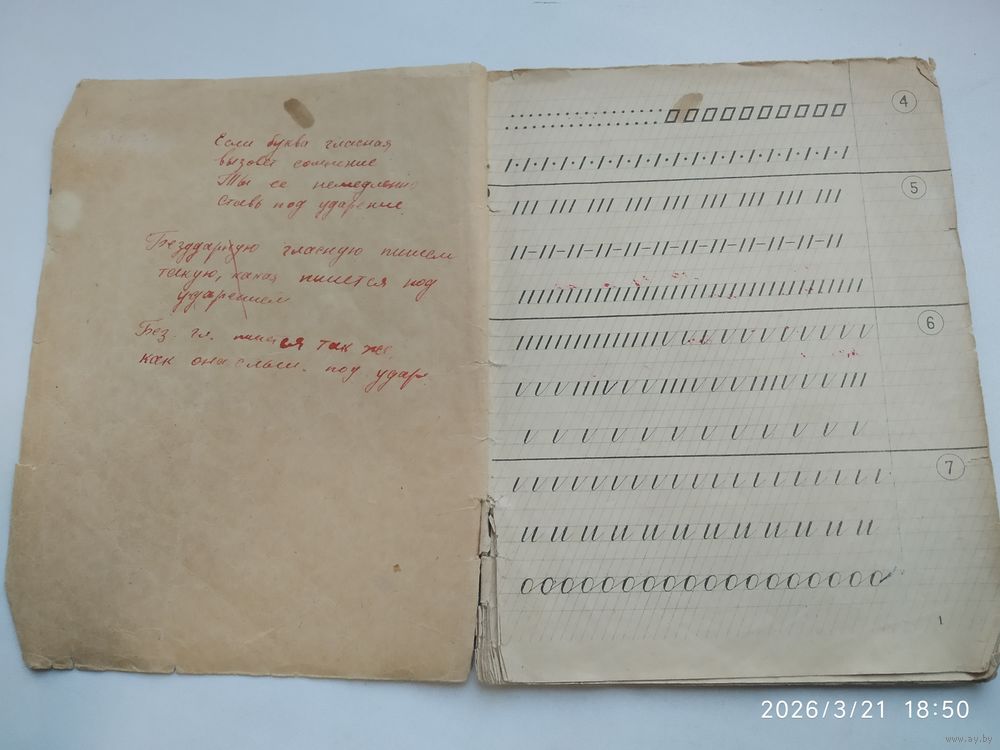 Если буква гласная
вызовет сомнение
Ты ее немедленно
ставь под ударение.
Безударную гласную пишем
такую, какая пишется под
ударением
Без. гл. пишется так же,
как она слыш. под удар.
4
5
6
7
1
2026/3/21 18:50
www.ay.by